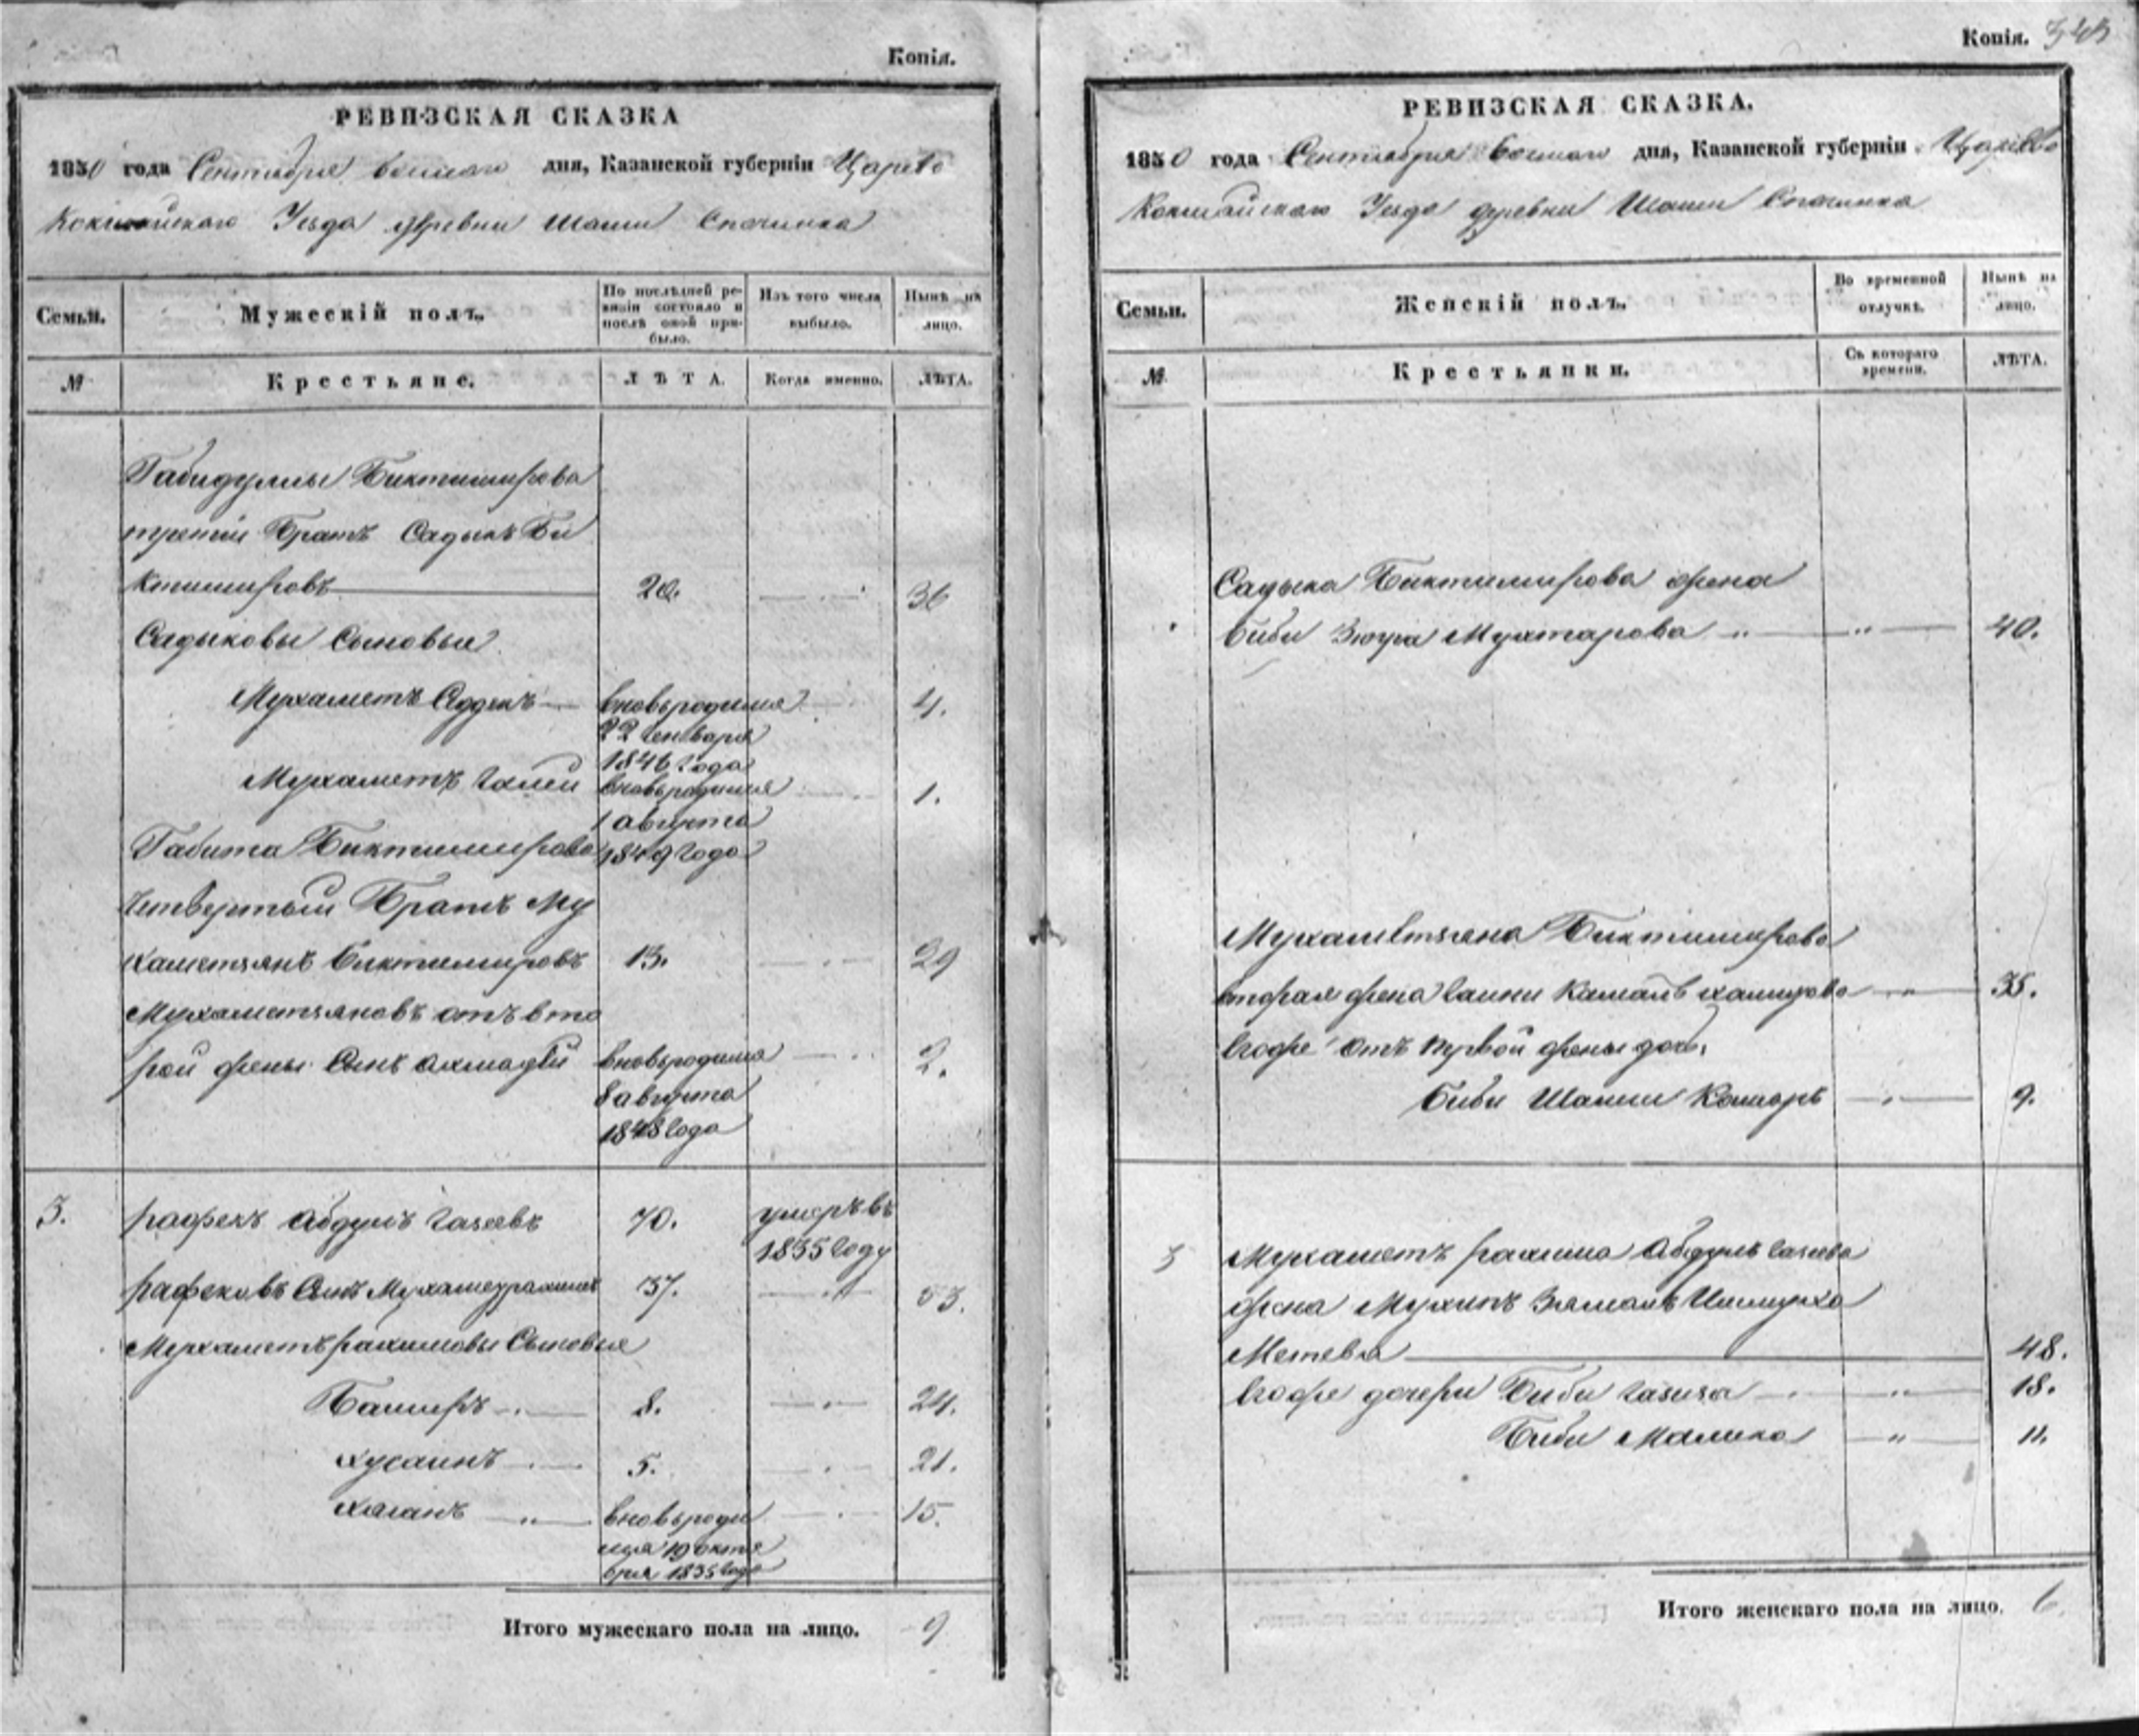 Копія.
РЕВИЗСКАЯ СКАЗКА
1850 года Сентября дня, Казанской губерніи Царево
Кокшайскаго Уезда деревни Шаши
Семьи.
Мужескій полъ.
По послѣдней ре-
визіи состояло и
послѣ оной при-
было.
Изъ того числа
выбыло.
Нынѣ на
лицо.
№
Крестьяне.
ЛѢТА.
Когда именно.
ЛѢТА.
Габидуллы Биктимирова
третий Братъ Садыкъ Би
ктимировъ 20. 36
Садыковы Сыновья
Мухаметъ Садыкъ вновьродился 4.
22 Генваря
1846 года
Мухаметъ Галей вновьродился 1.
1 августа
Габита Биктимирова 1849 года
Четвертый Братъ Му
хаметзянъ Биктимировъ 13. 29
Мухаметзяновъ отъ вто
рой жены Сынъ Ахмадей вновьродился 2.
8 августа
1848 года
3. Рафекъ Абдулъ Газеевъ 70. умеръ въ
1835 году
Рафековъ Сынъ Мухаметрахимъ 37. 53.
Мухаметъ рахимовы Сыновья
Баширъ 8. 24.
Хусаинъ 5. 21.
Хасанъ вновьроди 15.
лся 19 октя
бря 1835 года
Итого мужескаго пола на лицо. 9
Копія.
РЕВИЗСКАЯ СКАЗКА.
1850 года Сентября дня, Казанской губерніи Царево
Кокшайскаго Уезда деревни Шаши
Семьи.
Женскій полъ.
Во временной
отлучкѣ.
Нынѣ на
лицо.
№
Крестьянки.
Съ котораго
времени.
ЛѢТА.
Садыка Биктимирова жена
Биби Зюгра Мухтарова 40.
Мухаметзяна Биктимирова
вторая жена Камалъ 35.
Егоже отъ первой жены дочь
Биби Шамси Камаръ 9.
3 Мухаметъ рахима Абдулъ Газеева
жена Зямалъ Ишмуха
Метева 48.
Егоже дочери Биби Газиза 18.
Биби Малика 11.
Итого женскаго пола на лицо. 6.